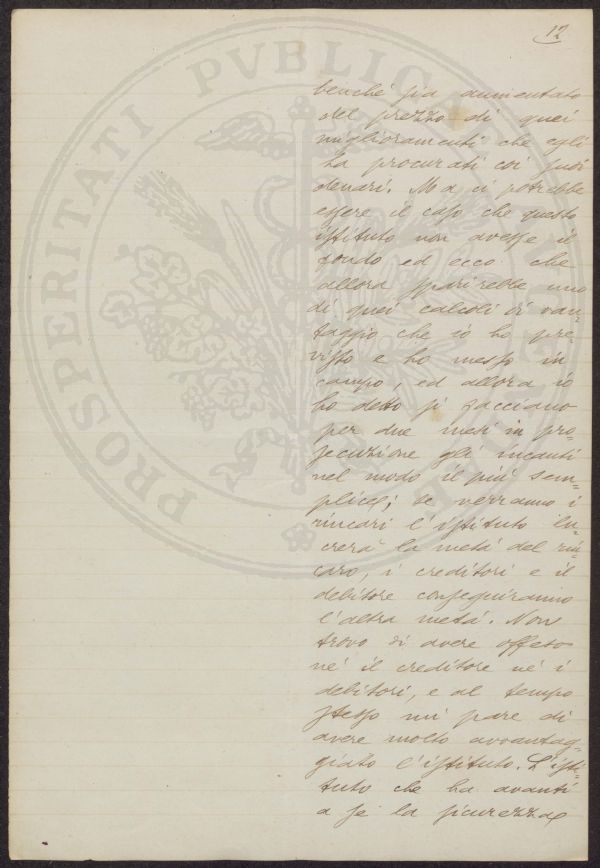 12
PROSPERITATI PVBLICAE
benché sia aumentato
del prezzo di quei
miglioramenti che egli
ha procurati coi suoi
denari. Ma ci potrebbe
essere il caso che questo
istituto non avesse il
fondo ed ecco che
allora sparirebbe uno
di quei calcoli di van-
taggio che io ho pre-
visto e ho messo in
campo, ed allora io
ho detto si facciano
per due mesi in pro-
secuzione gli incanti
nel modo il più sem-
plice; se verranno i
rincari l'istituto lu-
crerà la metà del rin-
caro, i creditori e il
debitore conseguiranno
l'altra metà. Non
trovo di avere offeso
né il creditore né i
debitori, e al tempo
stesso mi pare di
avere molto avvantag-
giato l'istituto. L'isti-
tuto che ha avanti
a se la sicurezza